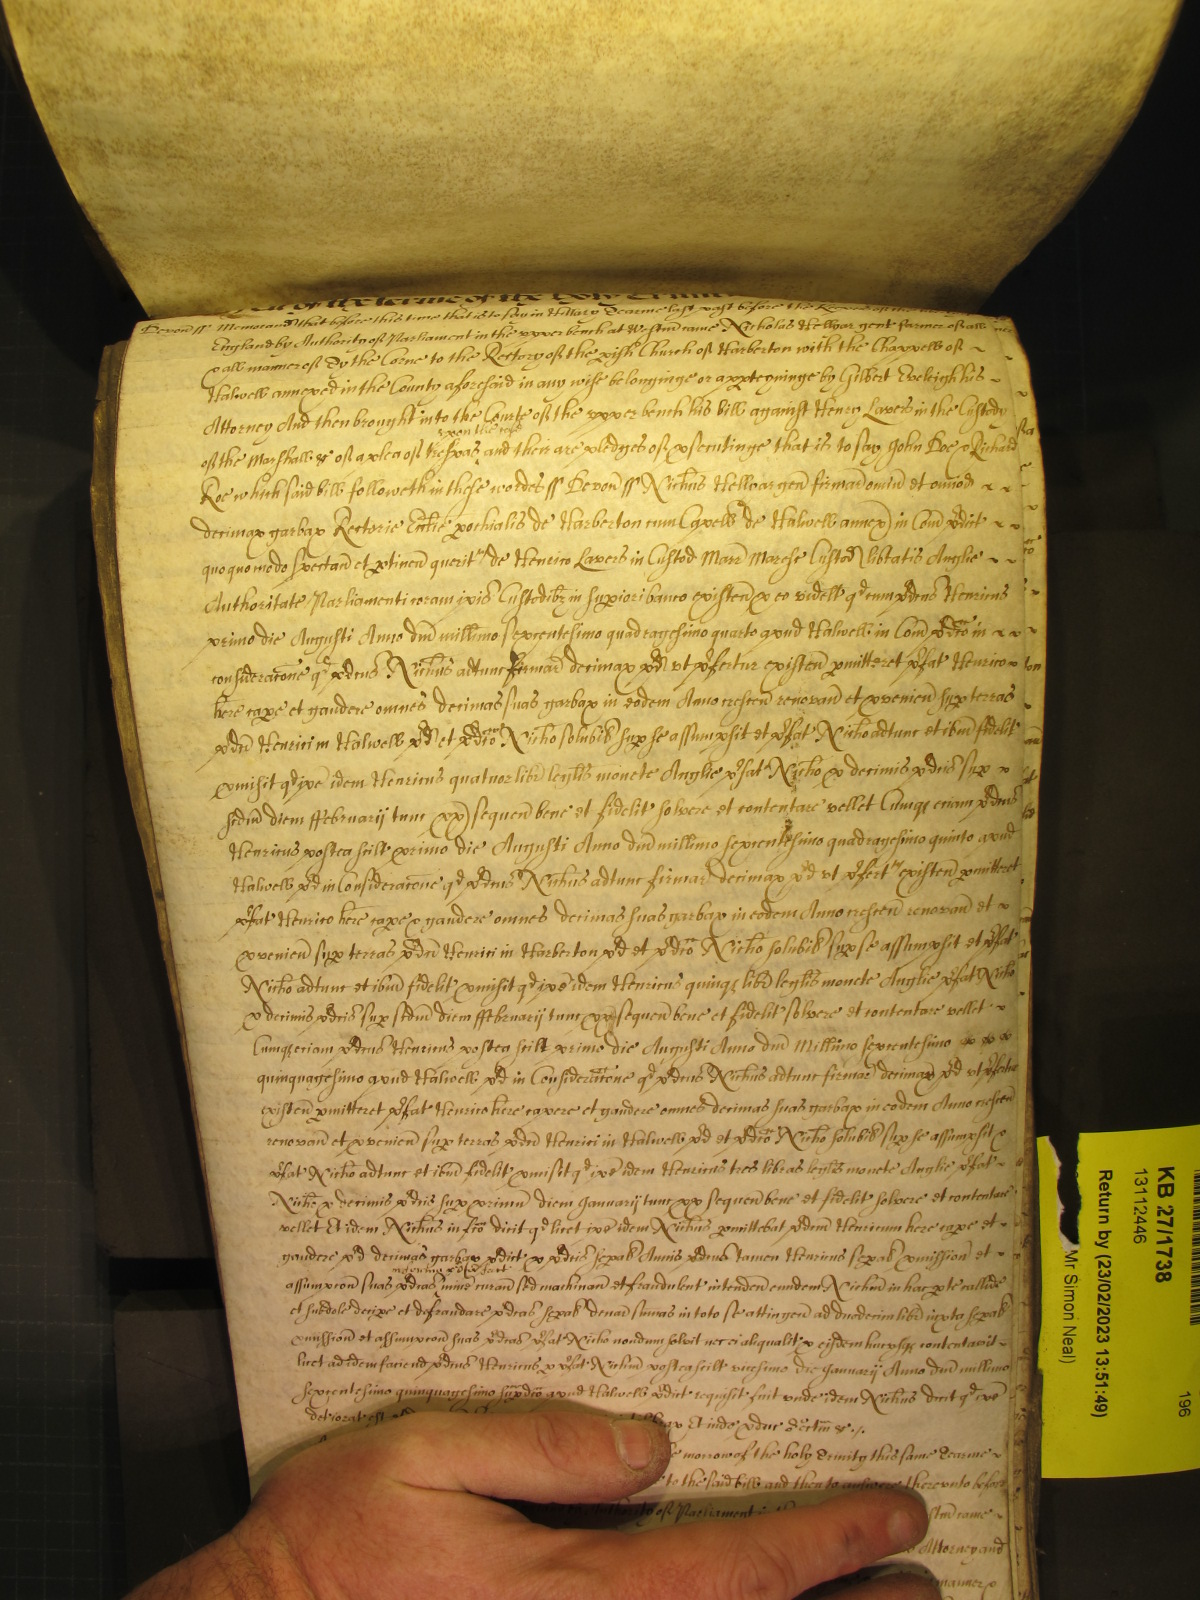 of the terme of the holy Trini
Devon ss Memorand that before this time that is to say in Hillary Tearme last past before the Keepers of the
England by Authority of Parliament in the upper bench at Westm came Nicholas Hellwar gent farmer of all
& all manner of Tythe Corne to the Rectory of the pish Church of Harberton with the Chappell of
Halwell annexed in the County aforesaid in any wise belonginge or apptegninge by Gilbert Eveleigh his
Attorney And then brought into the Courte of the upper bench his bill against Henry Lavers in the Custody
upon the case
of the Marshall &c of a plea of trespas and their are pledges of psecutinge that is to say John Doe & Richard
Roe which said bill followeth in these wordes ss Devon ss Nichus Hellwar gen firmar omiu et omiod
decimar garbar Rectorie Ecctie pochialis de Harberton cum Capell de Halwell annex in Com pdict
quoquomodo spectan et ptinen querit de Henrico Lavers in Custod Marr Marese Custod libtatis Anglie
Authoritate Parliamenti coram ipis Custodibz in supiori banco existen p eo videlt qd cum pdcus Henricus
primo die Augusti Anno dni millimo sexcentesimo quadragesimo quarto apud Halwell in Com pdco in
consideracone qd pdcus Nichus adtunc firmar decimar pd ut pfertur existen pmitteret pfat Henrico
here cape et gaudere omnes decimas suas garbar in eodem Anno crescen renovan et pvenien sup terras
pdci Henrici in Halwell pd et pdco Nicho solubil sup se assumpsit et pfat Nicho adtunc et ibm fidelit
pmisit qd ipe idem Henricus quatuor libr leglis monete Anglie pfat Nicho p decimis pdcis sup
scdm diem ffebruarij tunc px sequen bene et fidelit solvere et contentare vellet Cumqz eciam pdcus
Henricus postea scilt primo die Augusti Anno dni millimo sexcentesimo quadragesimo quinto apud
Halwell pd in Consideracone qd pdcus Nichus adtunc firmar decimar pd ut pfert existen pmitteret
pfat Henrico here cape & gaudere omnes decimas suas garbar in eodem Anno crescen renovan et
pvenien sup terras pdci Henrici in Harberton pd et pdco Nicho solubil sup se assumpsit et pfat
Nicho adtunc et ibm fidelit pmisit qd ipe idem Henricus quinqz libr leglis monete Anglie pfat Nicho
p decimis pdcis sup scdm diem ffebruarij tunc px sequen bene et fidelit solvere et contentare vellet
Cumqz eciam pdcus Henricus postea scilt primo die Augusti Anno dni Millimo sexcentesimo
quinquagesimo apud Halwell pd in Consideracone qd pdcus Nichus adtunc firmar decimar pd ut pfertur
existen pmitteret pfat Henrico here capere et gaudere omnes decimas suas garbar in eodem Anno crescen
renovan et pvenien sup terras pdci Henrici in Halwell pd et pdco Nicho solubil sup se assumpsit &
pfat Nicho adtunc et ibm fidelit pmisit qd ipe idem Henricus tres libras leglis monete Anglie pfat
Nicho p decimis pdcis sup primu diem Januarij tunc px sequen bene et fidelit solvere et contentare
vellet Et idem Nichus in fco dicit qd licet ipe idem Nichus pmittebat pdcm Henricum here cape et
gaudere pd decimas garbar pdict p pdcis sepal Annis pdcus tamen Henricus sepal pmission et
assumpcon suas pdcas minime curan sed machinan et fraudulent intenden eundem Nichum in hac pte callide
et subdole decipe et defraudare pdcas sepal denar sumas in toto se attingen ad duodecim libr iuxta sepal
pmission et assumpcon suas pdcas pfat Nicho nondum solvit nec ei aliqualit p eisdem hucusqz contentavit
licet ad idem faciend pdcus Henricus p pfat Nichum postea scilt vicesimo die Januarij Anno dni millimo
sexcentesimo quinquagesimo supdco apud Halwell pdict requisit fuit unde idem Nichus dicit qd ipe
deteriorat est
Et inde pduc sectm &c
morrow of the holy Trinity this same Tearme
to the said bill and then to answere thereunto before
of Parliament in
came
Attorney and
manner
KB 27/1738
13112446
Return by (23/02/2023 13:51:49)
Mr Simon Neal)
196